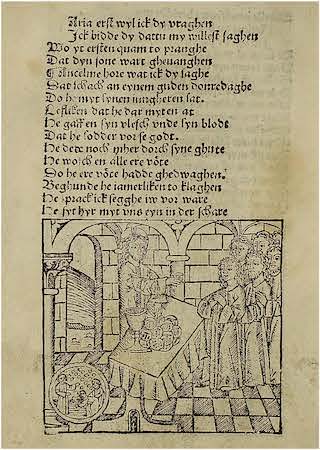 Aria erst wyl ick dy vraghen
Ick bidde dy dattu my willest saghen
Wo yt ersten quam to pranghe
Dat dyn sone wart ghevanghen
Ancelme hore wat ick dy saghe
Dat schach an eynem guden donredaghe
Do he myt synen iungheren sat.
Lefliken dat he dar myten at
He gaff en syn vlesch vnde syn blodt
Dat he lodder vor se godt.
He dede noch mher dorch syne ghute
He wosch en alle ere vöte
So he ere vöte hadde ghedwaghen.
Beghunde he iamerliken to klaghen
He sprack ick segghe iw vor ware
He syt hyr myt vns eyn in der schare